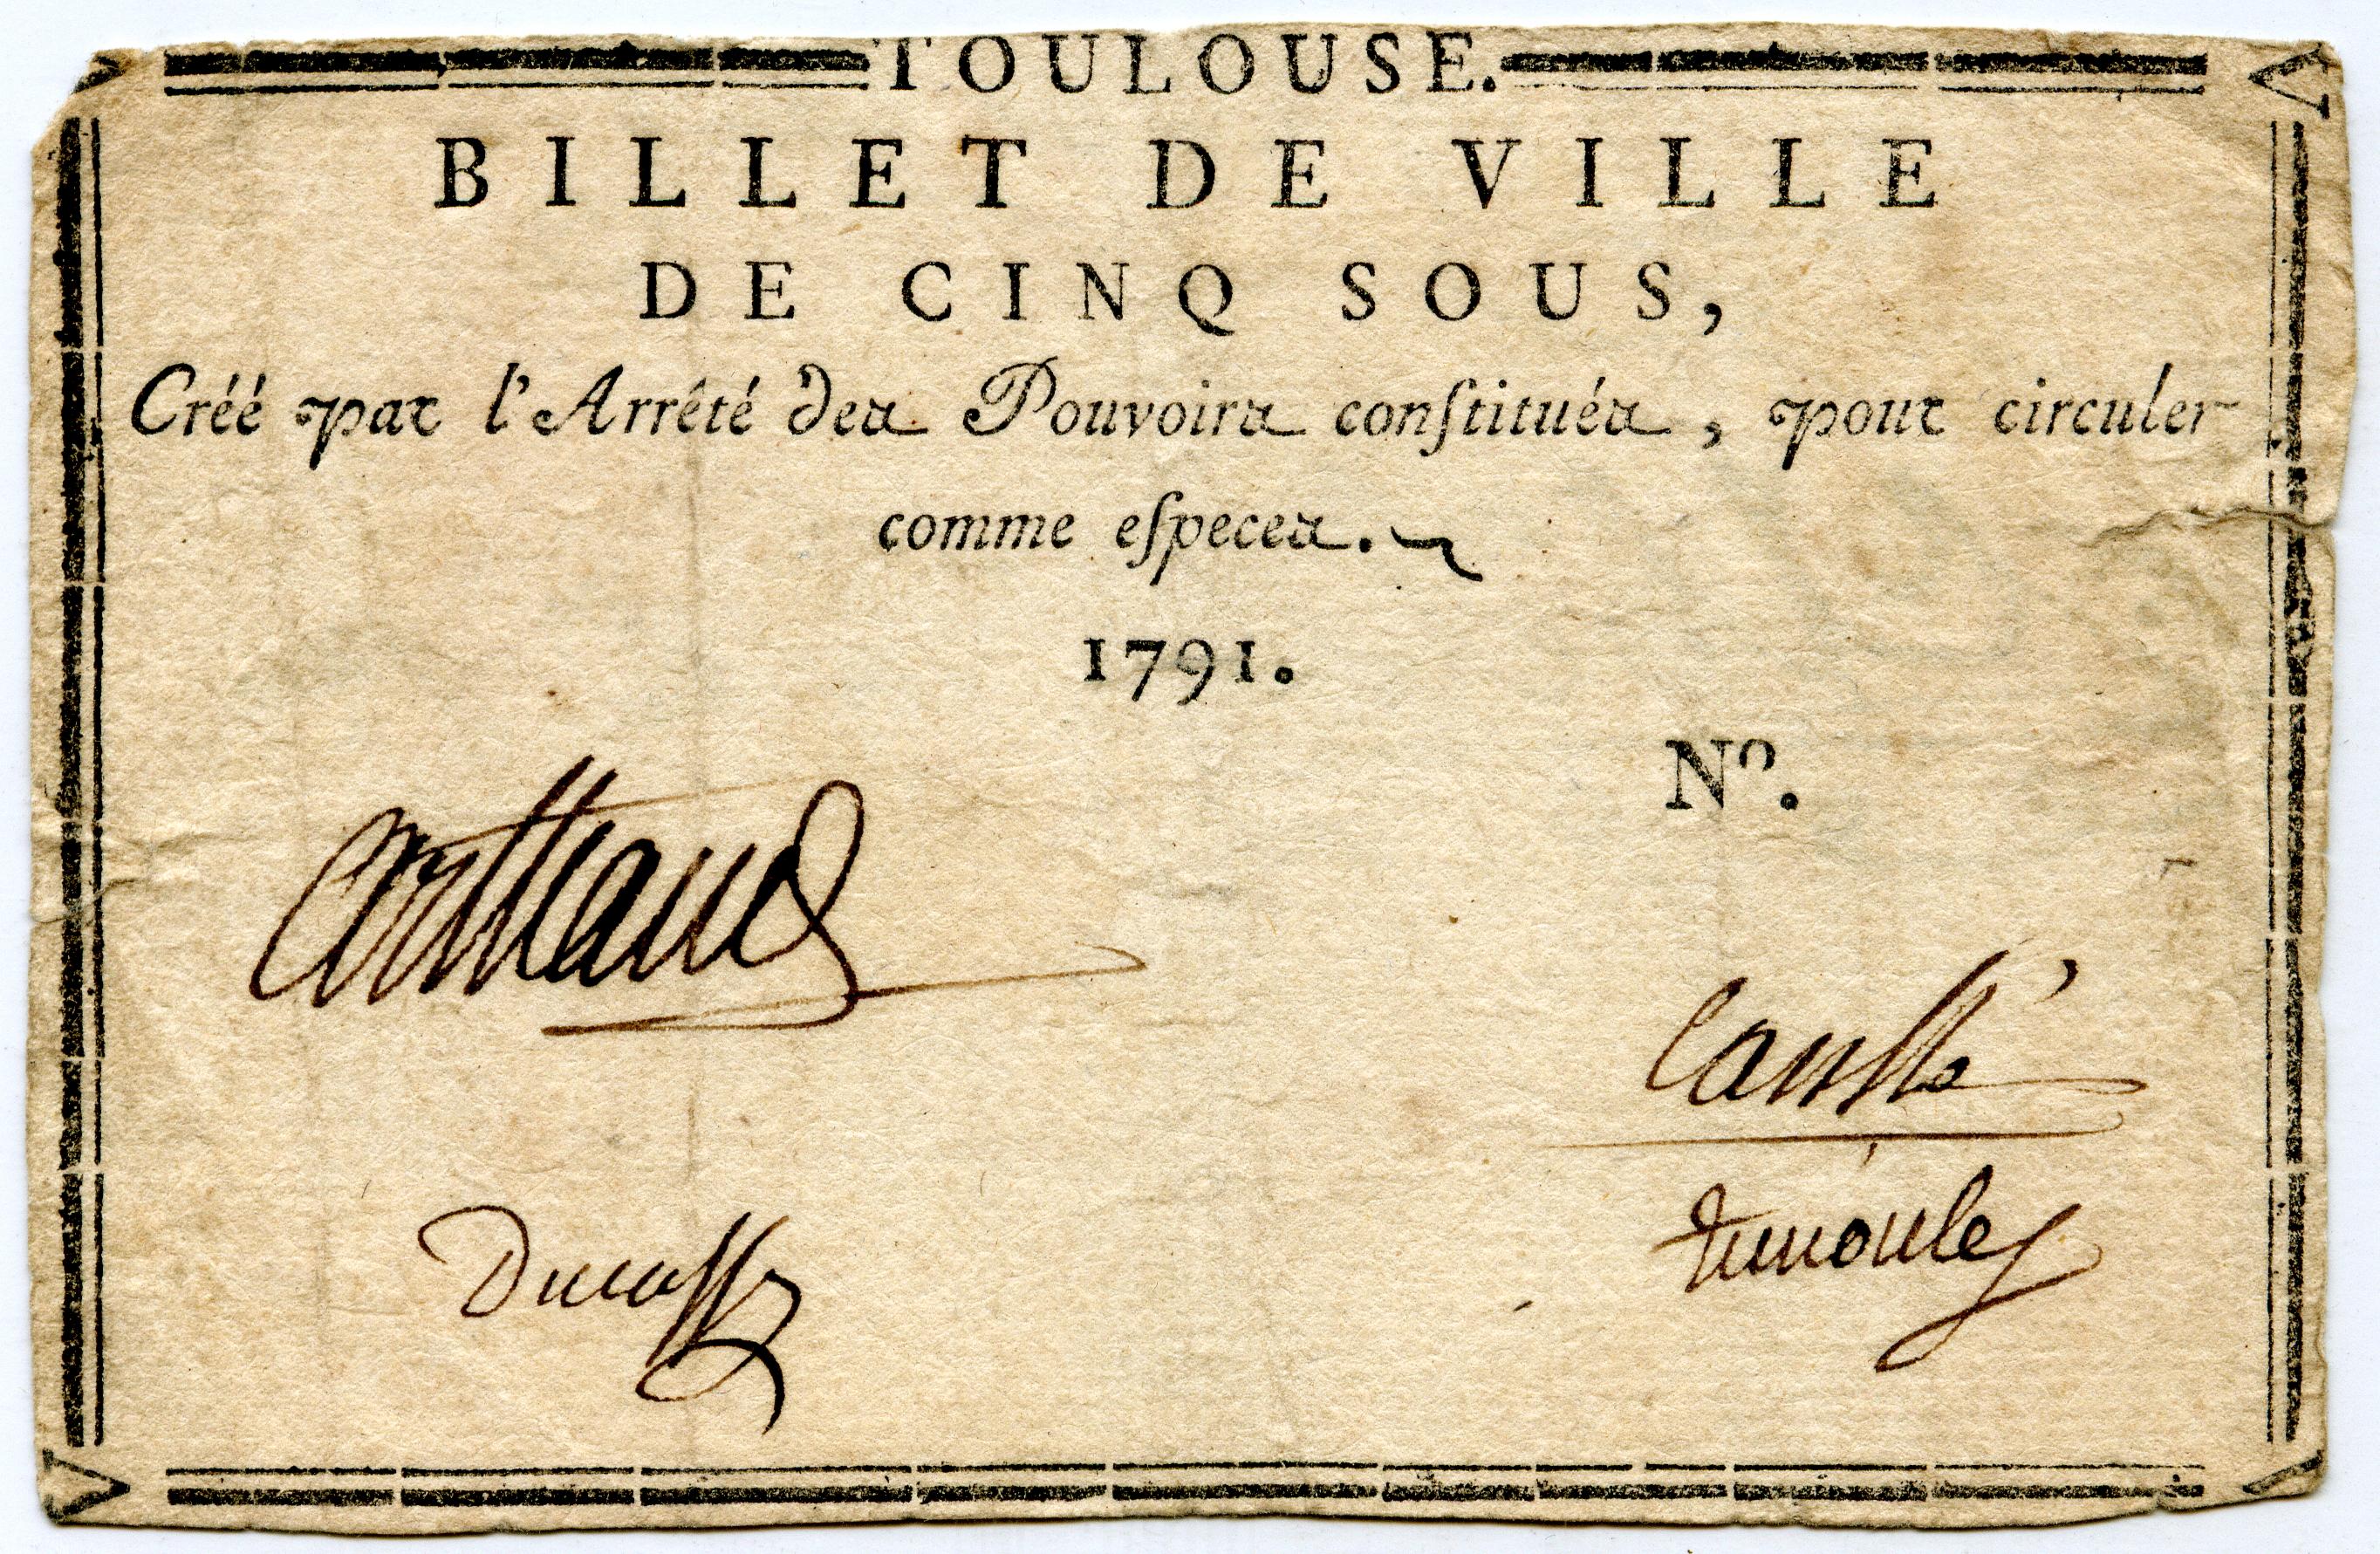 TOULOUSE.
BILLET DE VILLE
DE CINQ SOUS,
Créé par l'Arrêté des Pouvoirs conſtitués, pour circuler
comme eſpeces.
1791.
Nº.
Causse
Ducasse